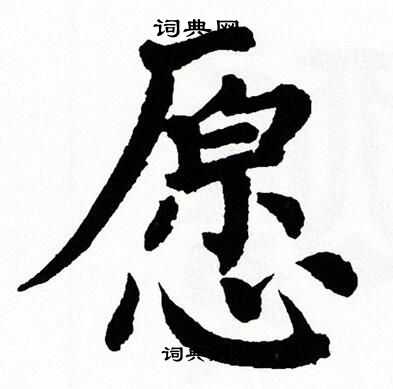 词典网
愿
词典